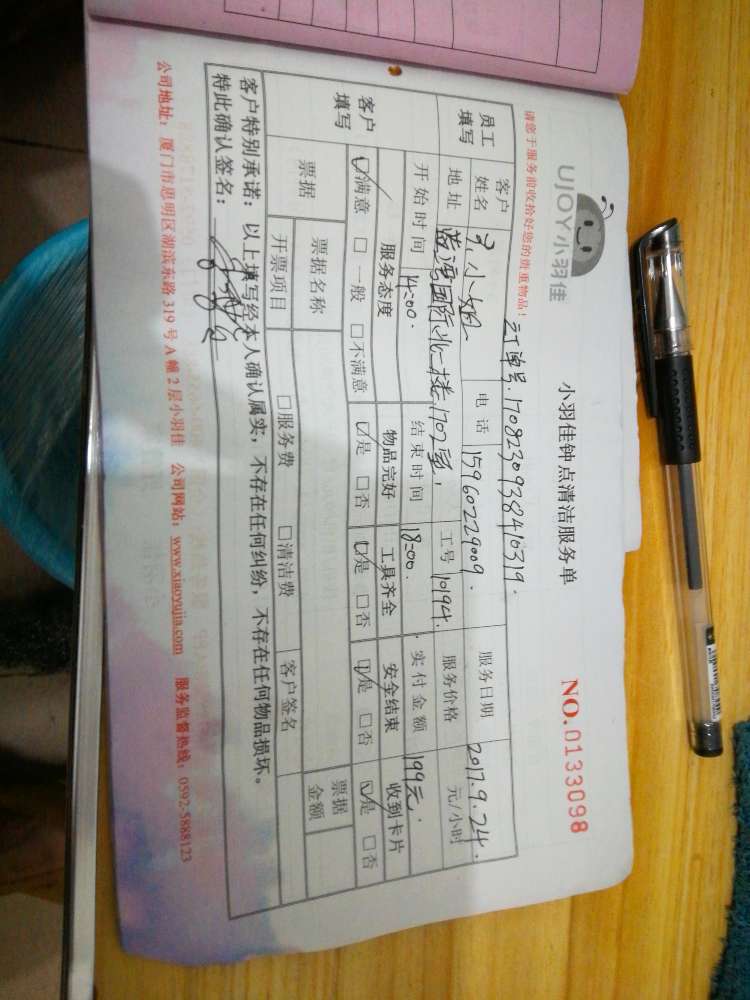 UJOY小羽佳
小羽佳钟点清洁服务单
NO.0133098
请您于服务前收拾好您的贵重物品!
订单号:1708230938410319.
员工填写
客户姓名 孔小姐 电话 15960229009. 服务日期 2017.9.24.
地址 蓝湾国际北二楼1702室, 工号 10194. 服务价格 元/小时
开始时间 14:00. 结束时间 18:00. 实付金额 199元.
客户填写
服务态度 物品完好 工具齐全 安全结束 收到卡片
☑满意 □一般 □不满意 ☑是 □否 ☑是 □否 ☑是 □否 ☑是 □否
票据 票据名称 票据金额
开票项目 □服务费 □清洁费 客户签名
客户特别承诺:以上填写经本人确认属实,不存在任何纠纷,不存在任何物品损坏。
特此确认签名:
公司地址:厦门市思明区湖滨东路319号A幢2层小羽佳 公司网站:www.xiaoyujia.com 服务监督热线:0592-5888123